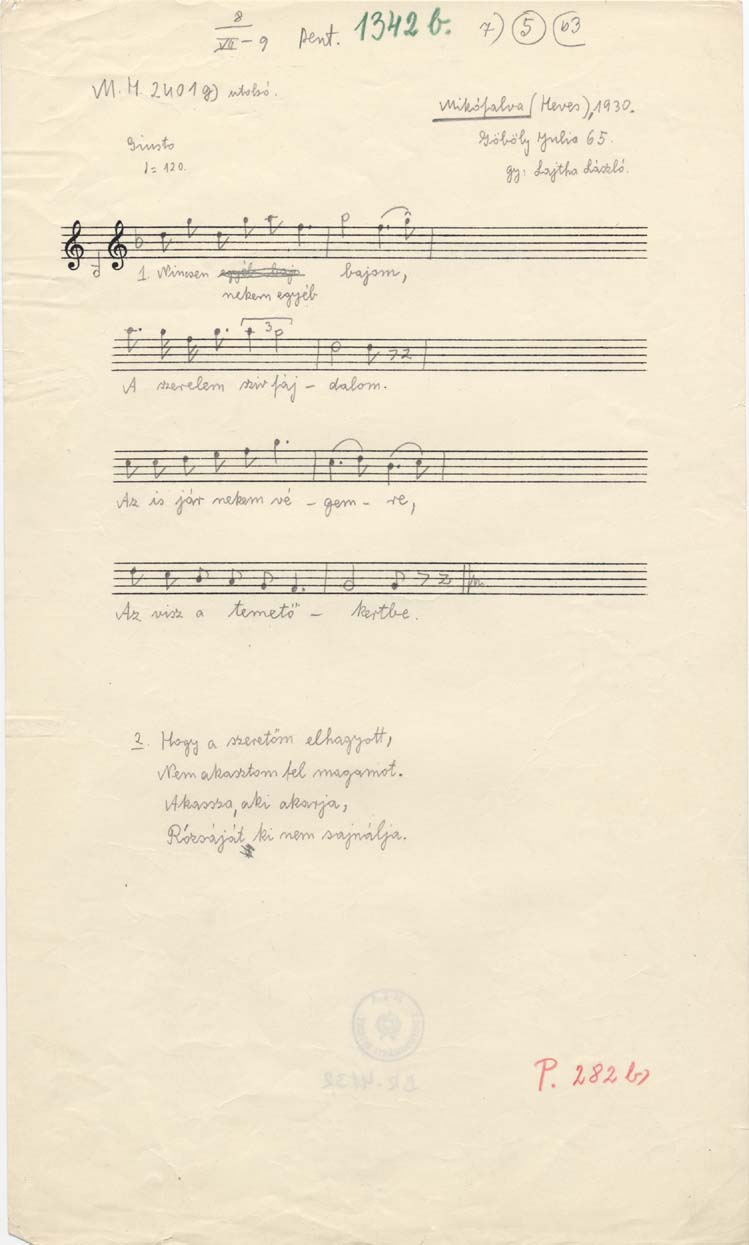 8
VII - 9 pent. 1342 b. 7) 5 b3
M.H. 2401 g) utolsó.
Mikófalva (Heves), 1930.
Giusto
Göböly Julia 65.
♩= 120.
gy: Lajtha László.
1. Nincsen egyéb baj bajom,
nekem egyéb
3
A szerelem sziv fáj - dalom.
Az is jár nekem vé - gem - re,
Az visz a temető - kertbe.
2. Hogy a szeretőm elhagyott,
Nem akasztom fel magamot.
Akassza, aki akarja,
Rózsáját ki nem sajnálja.
P. 282 b)